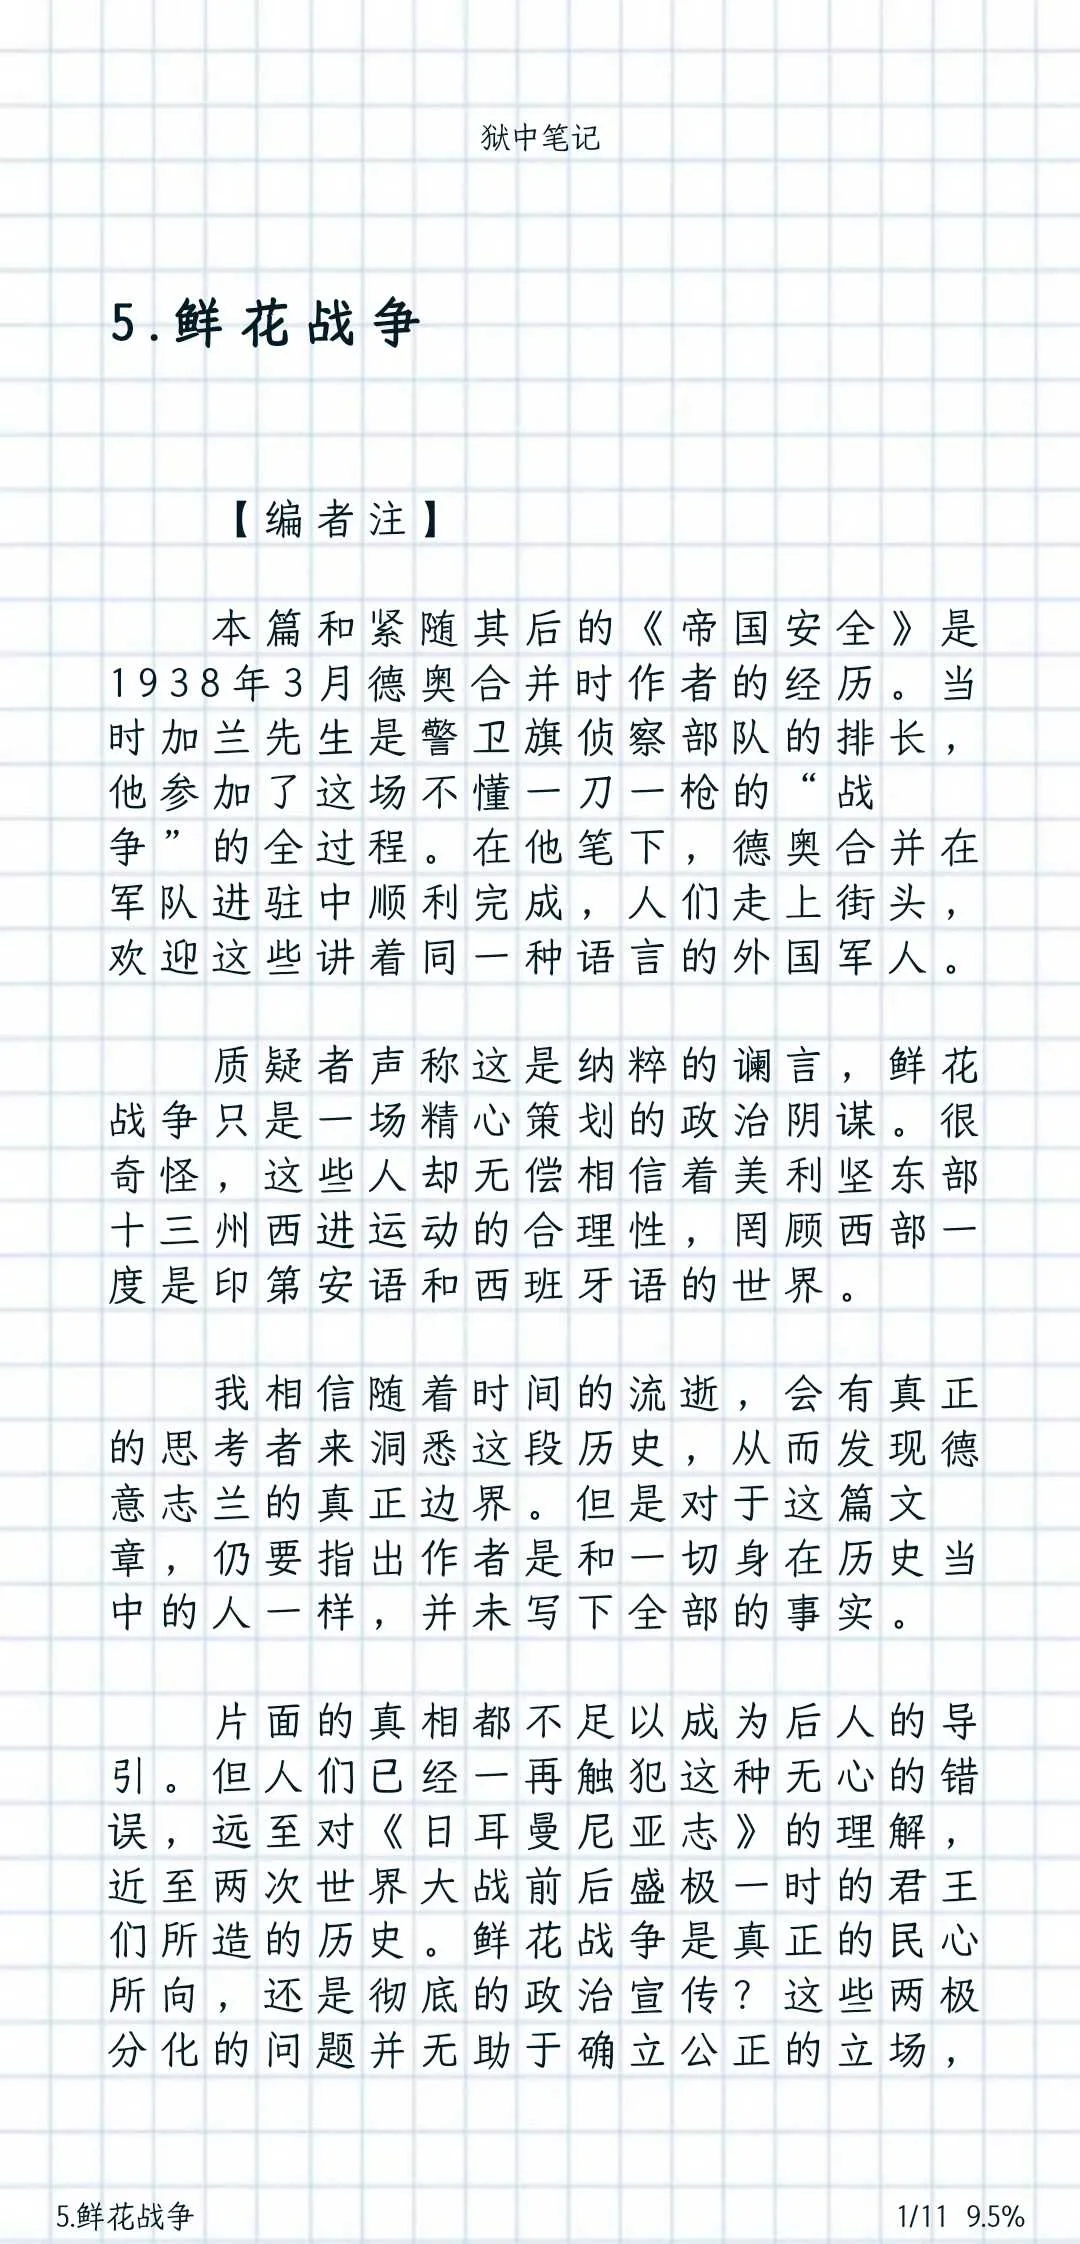 狱中笔记
5.鲜花战争
【编者注】
本篇和紧随其后的《帝国安全》是
1938年3月德奥合并时作者的经历。当
时加兰先生是警卫旗侦察部队的排长，
他参加了这场不懂一刀一枪的“战
争”的全过程。在他笔下，德奥合并在
军队进驻中顺利完成，人们走上街头，
欢迎这些讲着同一种语言的外国军人。
质疑者声称这是纳粹的谰言，鲜花
战争只是一场精心策划的政治阴谋。很
奇怪，这些人却无偿相信着美利坚东部
十三州西进运动的合理性，罔顾西部一
度是印第安语和西班牙语的世界。
我相信随着时间的流逝，会有真正
的思考者来洞悉这段历史，从而发现德
意志兰的真正边界。但是对于这篇文
章，仍要指出作者是和一切身在历史当
中的人一样，并未写下全部的事实。
片面的真相都不足以成为后人的导
引。但人们已经一再触犯这种无心的错
误，远至对《日耳曼尼亚志》的理解，
近至两次世界大战前后盛极一时的君王
们所造的历史。鲜花战争是真正的民心
所向，还是彻底的政治宣传？这些两极
分化的问题并无助于确立公正的立场，
5.鲜花战争
1/11 9.5%